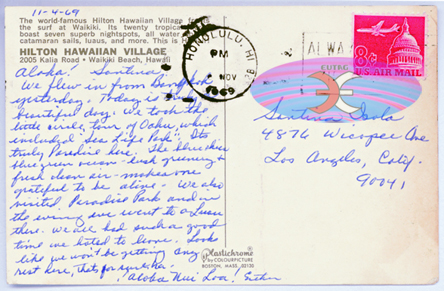 11-4-69
The world-famous Hilton Hawaiian Village
the surf at Waikiki. Its twenty tropical
boast seven superb nightspots, all water
catamaran sails, luaus, and more. This is
HILTON HAWAIIAN VILLAGE
2005 Kalia Road • Waikiki Beach, Hawaii
Aloha! Santina
We flew in from Bangkok
yesterday. Today is a
beautiful day. We took the
little circle tour of Oahu, which
included "Sea Life Park". Its
truly Paradise here. The blue skies
blue green ocean - lush greenery &
fresh clean air - makes one
grateful to be alive. We also
visited Paradise Park and in
the evening we went to a Luau
there. We all had such a good
time we hated to leave. Looks
like we won't be getting any
rest here, that's for sure. ha!
Aloha Nui Loa, Esther
HONOLULU, HI
PM
NOV
1969
ALWAYS
8c
U.S. AIR MAIL
Santina
4876 Wiccopee Ave
Los Angeles, Calif.
90041
Plastichrome
by COLOURPICTURE
BOSTON, MASS. 02130